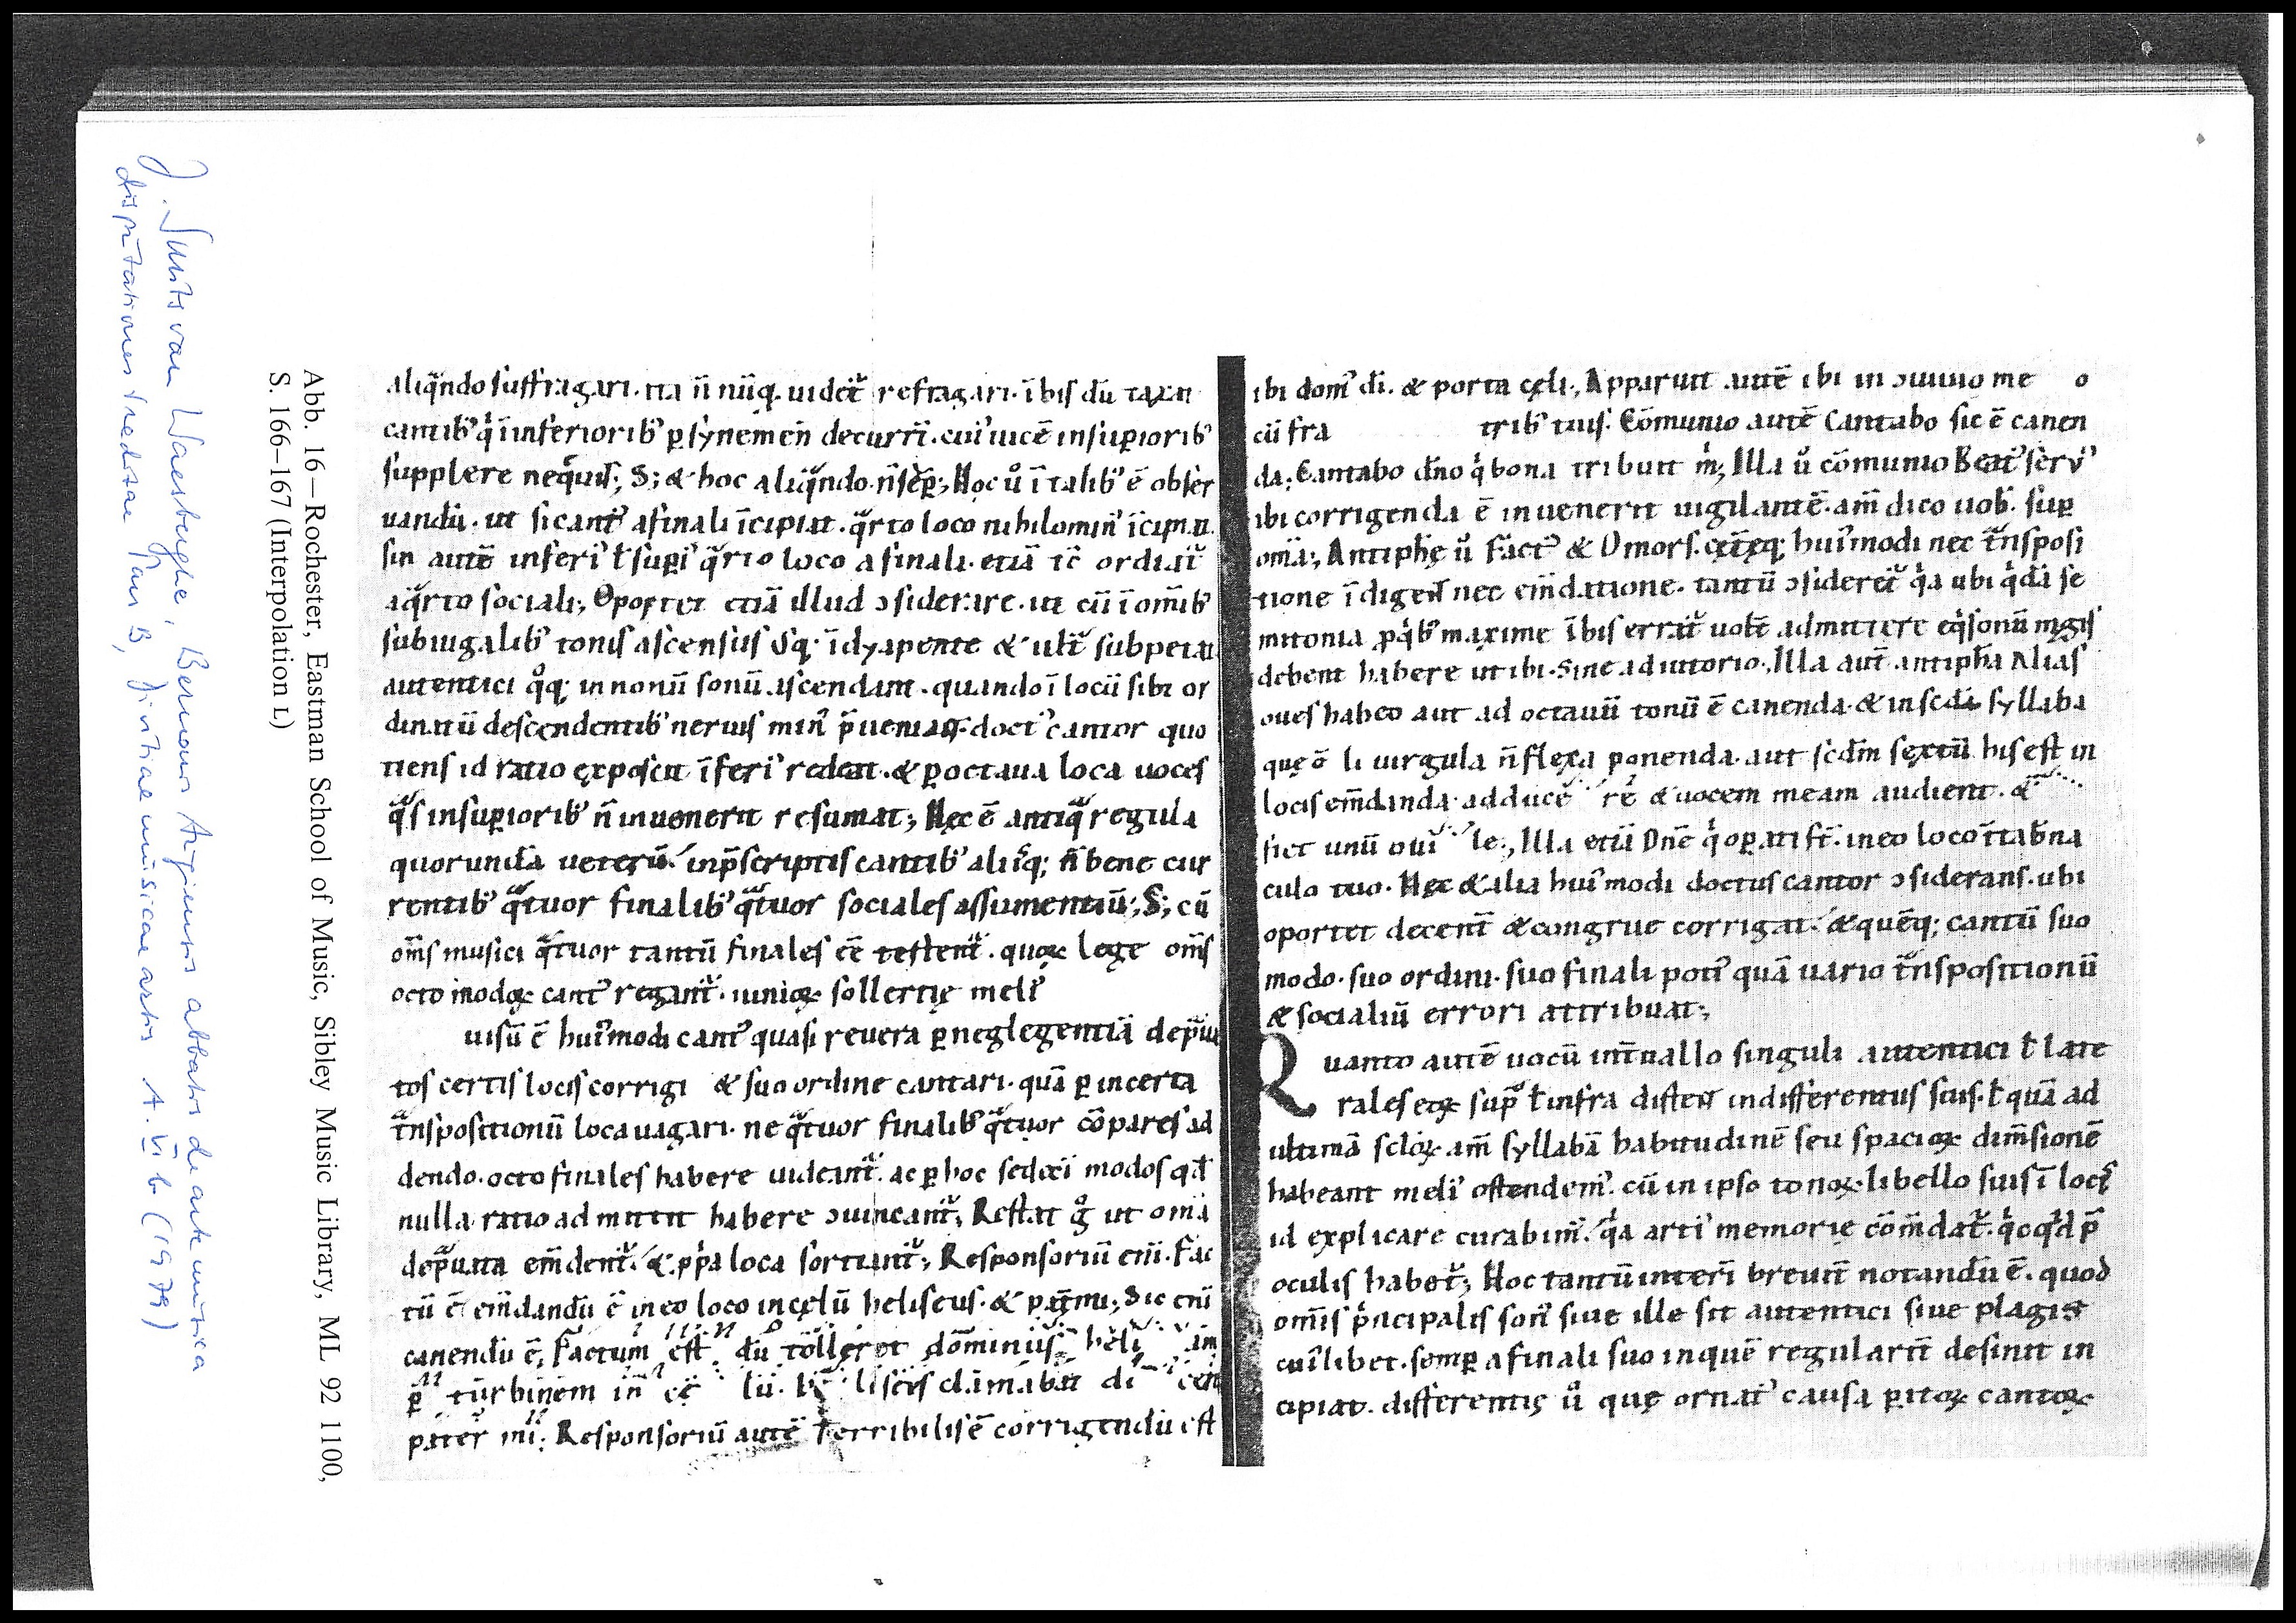 J. Smits van Waesberghe, Bernonis Augiensis abbatis de arte musica
disputationes traditae Pars B, Divitiae musicae artis A. VI b (1979)
Abb. 16—Rochester, Eastman School of Music, Sibley Music Library, ML 92 1100,
S. 166–167 (Interpolation I.)
aliq̄ndo suffragari. ita ū nūq. uidet᷑ refragari. ī his dū taxat
cantib᷒ q̇ ī inferiorib᷒ ꝑ synemen̄ decurrī. cui᷒ uicē insuꝑiorib᷒
supplere neq̇uis̄; S; & hoc aliq̄ndo. n̄ sēꝑ; Hoc ů ī talib᷒ ē obser
uandū. ut si cant᷒ a finali īcipiat. q̄rto loco nihilomin᷒ īcipiat.
sin autē inferi᷒ ł suꝑi᷒ q̄rto loco a finali. etiā
a q̄rto sociali; Oportet etiā illud ɔsiderare. ut cū ī om̄ib᷒
subiugalib᷒ tonis ascensus usq; ī dyapente & ult᷑
autentici q̊q; in nonū sonū ascendant. quando ī locū sibi or
dinatū descendentib᷒ neruis min᷒ p̄ueniat. doct᷒ cantor quo
tiens id ratio exposcit īferi᷒ redeat. & ꝑ octaua loca uoces
q̄s insuꝑiorib᷒ n̄ inuenerit resumat; Hec ē antiq̄ regula
quorundā ueterū. inp̄scriptis cantib᷒ aliq̇q; n̄ bene cur
rentib᷒ q̄tuor finalib᷒ q̄tuor sociales assumentiū; S; cū
om̄s musici q̄tuor tantū finales eē testent᷑. quoꝝ lege om̄s
octo modoꝝ cant᷒ regant᷑. iunioꝝ sollertię meli᷒
uisū ē hui᷒modi cant᷒ quasi reuera ꝑ neglegentiā dep̄ua
tos certis locis corrigi & suo ordine cantari. quā ꝑ incerta
t̄nspositionū loca uagari. ne q̄tuor finalib᷒ q̄tuor cōpares ad
dendo. octo finales habere uideant᷑. ac ꝑ hoc sedecī modos qd̄
nulla ratio admittit habere ɔuincant᷑; Restat g̊ ut om̄ia
dep̄uata em̄dent᷑. & p̱p̱a loca sortiant᷑; Responsoriū enī. Fac
tū ē em̄dandū ē in eo loco in cęlū heliseus. & pat̄ mi; Sic enī
canendū ē; Factum est dū tolleret dominus heli am
ꝑ turbinem in cę lū. heliseus clamabat di cens
pater mi; Responsoriū autē Terribilis ē corrigendū est
ibi dom᷒ dī. & porta cęli; Apparuit autē ibi in ɔuiuio me o
cū fra trib᷒ tuis. Cōmunio autē Cantabo sic ē canen
da; Cantabo dn̄o q̇ bona tribuit ṁ; Illa ů cōmunio Beat᷒ seru᷒
ibi corrigenda ē inuenerit uigilantē. am̄ dico uob̄. suꝑ
om̄ia; Antiphę ů Fact᷒ & O mors. cęt̄ęq; hui᷒modi nec t̄nsposi
tione īdigent nec em̄datione. tantū ɔsideret᷑ q̇a ubi q̇dā se
mitonia ꝑ q̇b᷒ maxime ībis errat᷑ uolē admittere eq̇sonū mągis
debent habere ut ibi. Sine adiutorio. Illa aut̄ antipha Alias
oues habeo aut ad octauū tonū ē canenda. & in scda syllaba
quę ē li uirgula n̄ flexa ponenda. aut scdm̄ sextū his est in
locis em̄danda. adduce re & uocem meam audient. &
fiet unū oui le; Illa etiā Dn̄e q̇ oꝑati st̄. in eo loco ī tab̄na
culo tuo. Hęc & alia hui᷒modi doctus cantor ɔsiderans. ubi
oportet decent̄ & congrue corrigat. & quēq; cantū suo
modo. suo ordini. suo finali poti᷒ quā uario t̄nspositionū
& socialiū errori attribuat;
uanto autē uocū int̄uallo singuli autentici ł late
rales eoꝝ sup̄ ł infra distent indifferentiis suis. ł quā ad
ultimā scłoꝝ. am̄ syllabā habitudinē seu spacioꝝ dim̄sionē
habeant meli᷒ ostendem᷒. cū in ipso tonoꝝ libello suis ī locis
id explicare curabim᷒. q̇a arti᷒ memorie cōm̄dat᷑. q̇cq̇d p̄
oculis habet᷑; Hoc tantū interī breuit̄ notandū ē. quod
om̄is ṗncipalis son᷒ siue ille sit autentici siue plagis
cui᷒libet. semꝑ a finali suo in quē regularit̄ desinit in
cipiat. differentię ů quę ornat᷒ causa ꝑitoꝝ cantoꝝ